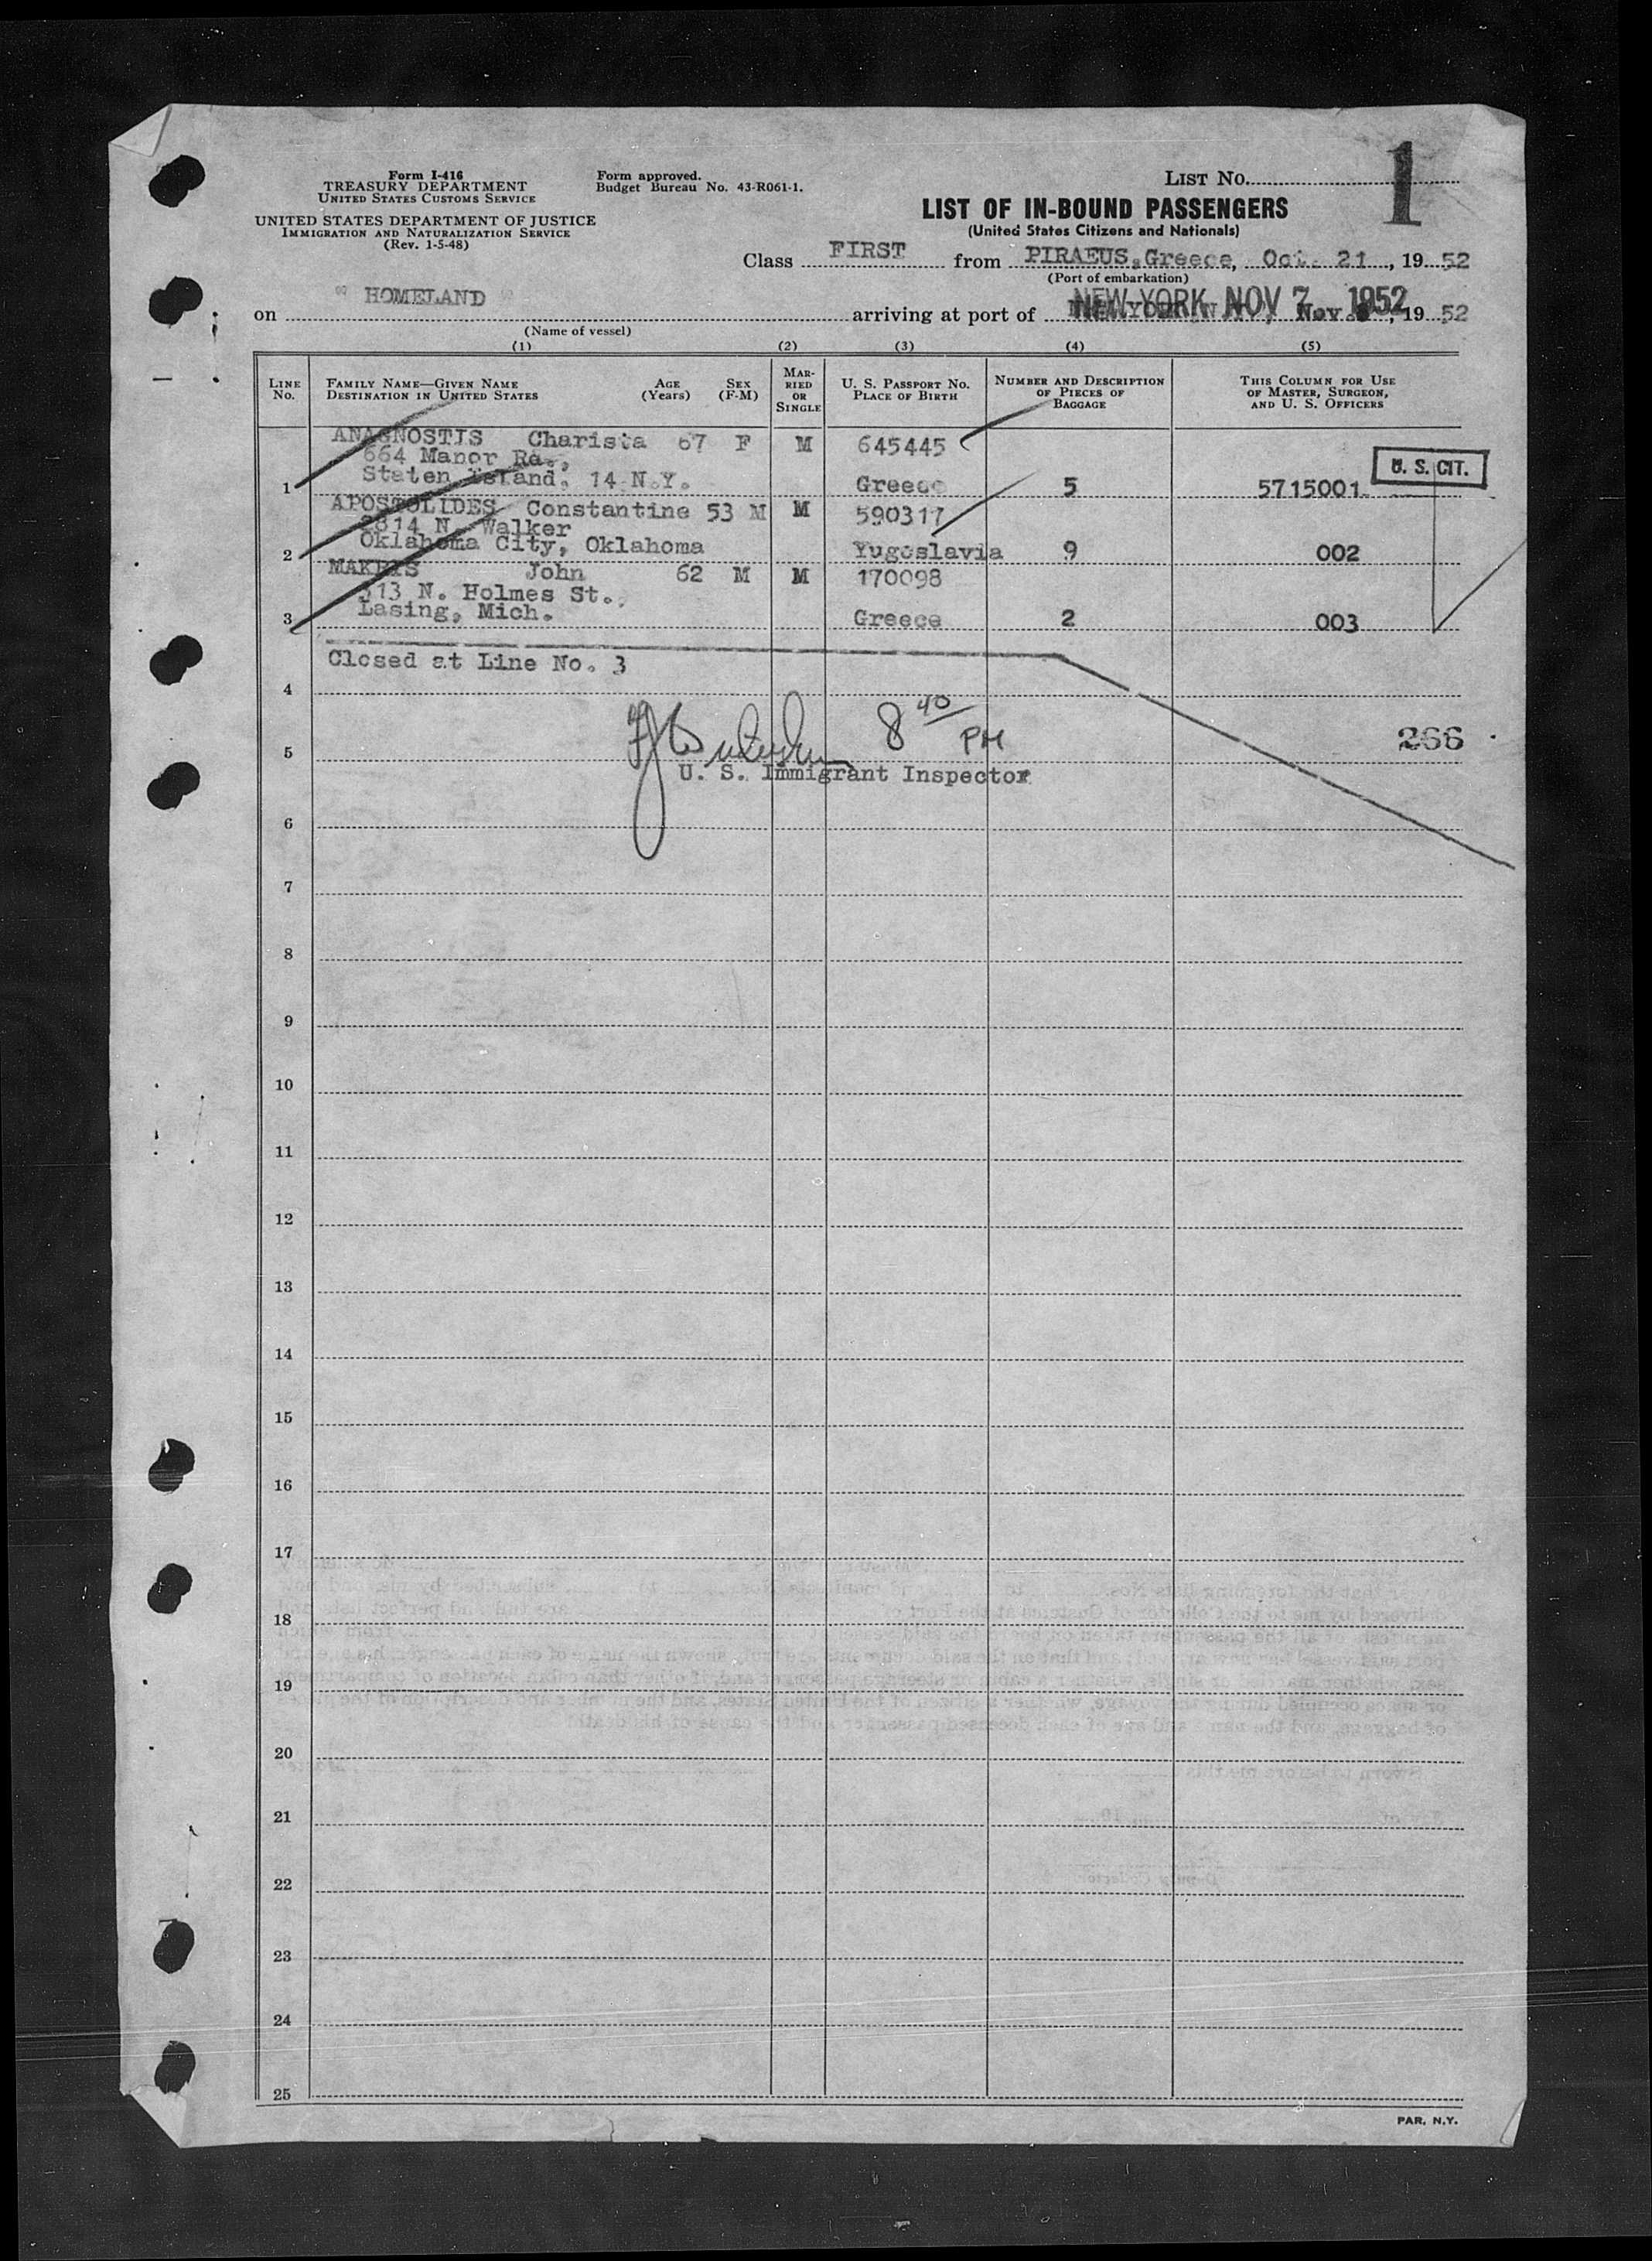 Form I-416
TREASURY DEPARTMENT
UNITED STATES CUSTOMS SERVICE
UNITED STATES DEPARTMENT OF JUSTICE
IMMIGRATION AND NATURALIZATION SERVICE
(Rev. 1-5-48)
Form approved.
Budget Bureau No. 43-R061-1.
LIST NO. 1
LIST OF IN-BOUND PASSENGERS
(United States Citizens and Nationals)
Class FIRST from PIRAEUS, Greece, Oct. 21, 1952
(Port of embarkation)
on " HOMELAND " arriving at port of NEW YORK NOV 7 1952 Nov. , 19 52
(Name of vessel)
(1) (2) (3) (4) (5)
LINE NO. FAMILY NAME—GIVEN NAME DESTINATION IN UNITED STATES AGE (Years) SEX (F-M) MARRIED OR SINGLE U. S. PASSPORT NO. PLACE OF BIRTH NUMBER AND DESCRIPTION OF PIECES OF BAGGAGE THIS COLUMN FOR USE OF MASTER, SURGEON, AND U. S. OFFICERS
ANAGNOSTIS Charista 67 F M 645445
664 Manor Rd.,
U. S. CIT.
1 Staten Island, 14 N.Y. Greece 5 5715001
APOSTOLIDES Constantine 53 M M 590317
2814 N. Walker
2 Oklahoma City, Oklahoma Yugoslavia 9 002
MAKRIS John 62 M M 170098
313 N. Holmes St.,
3 Lasing, Mich. Greece 2 003
Closed at Line No. 3
4
8 40 PM
266
5
U. S. Immigrant Inspector
6
7
8
9
10
11
12
13
14
15
16
17
18
19
20
21
22
23
24
25
PAR, N.Y.